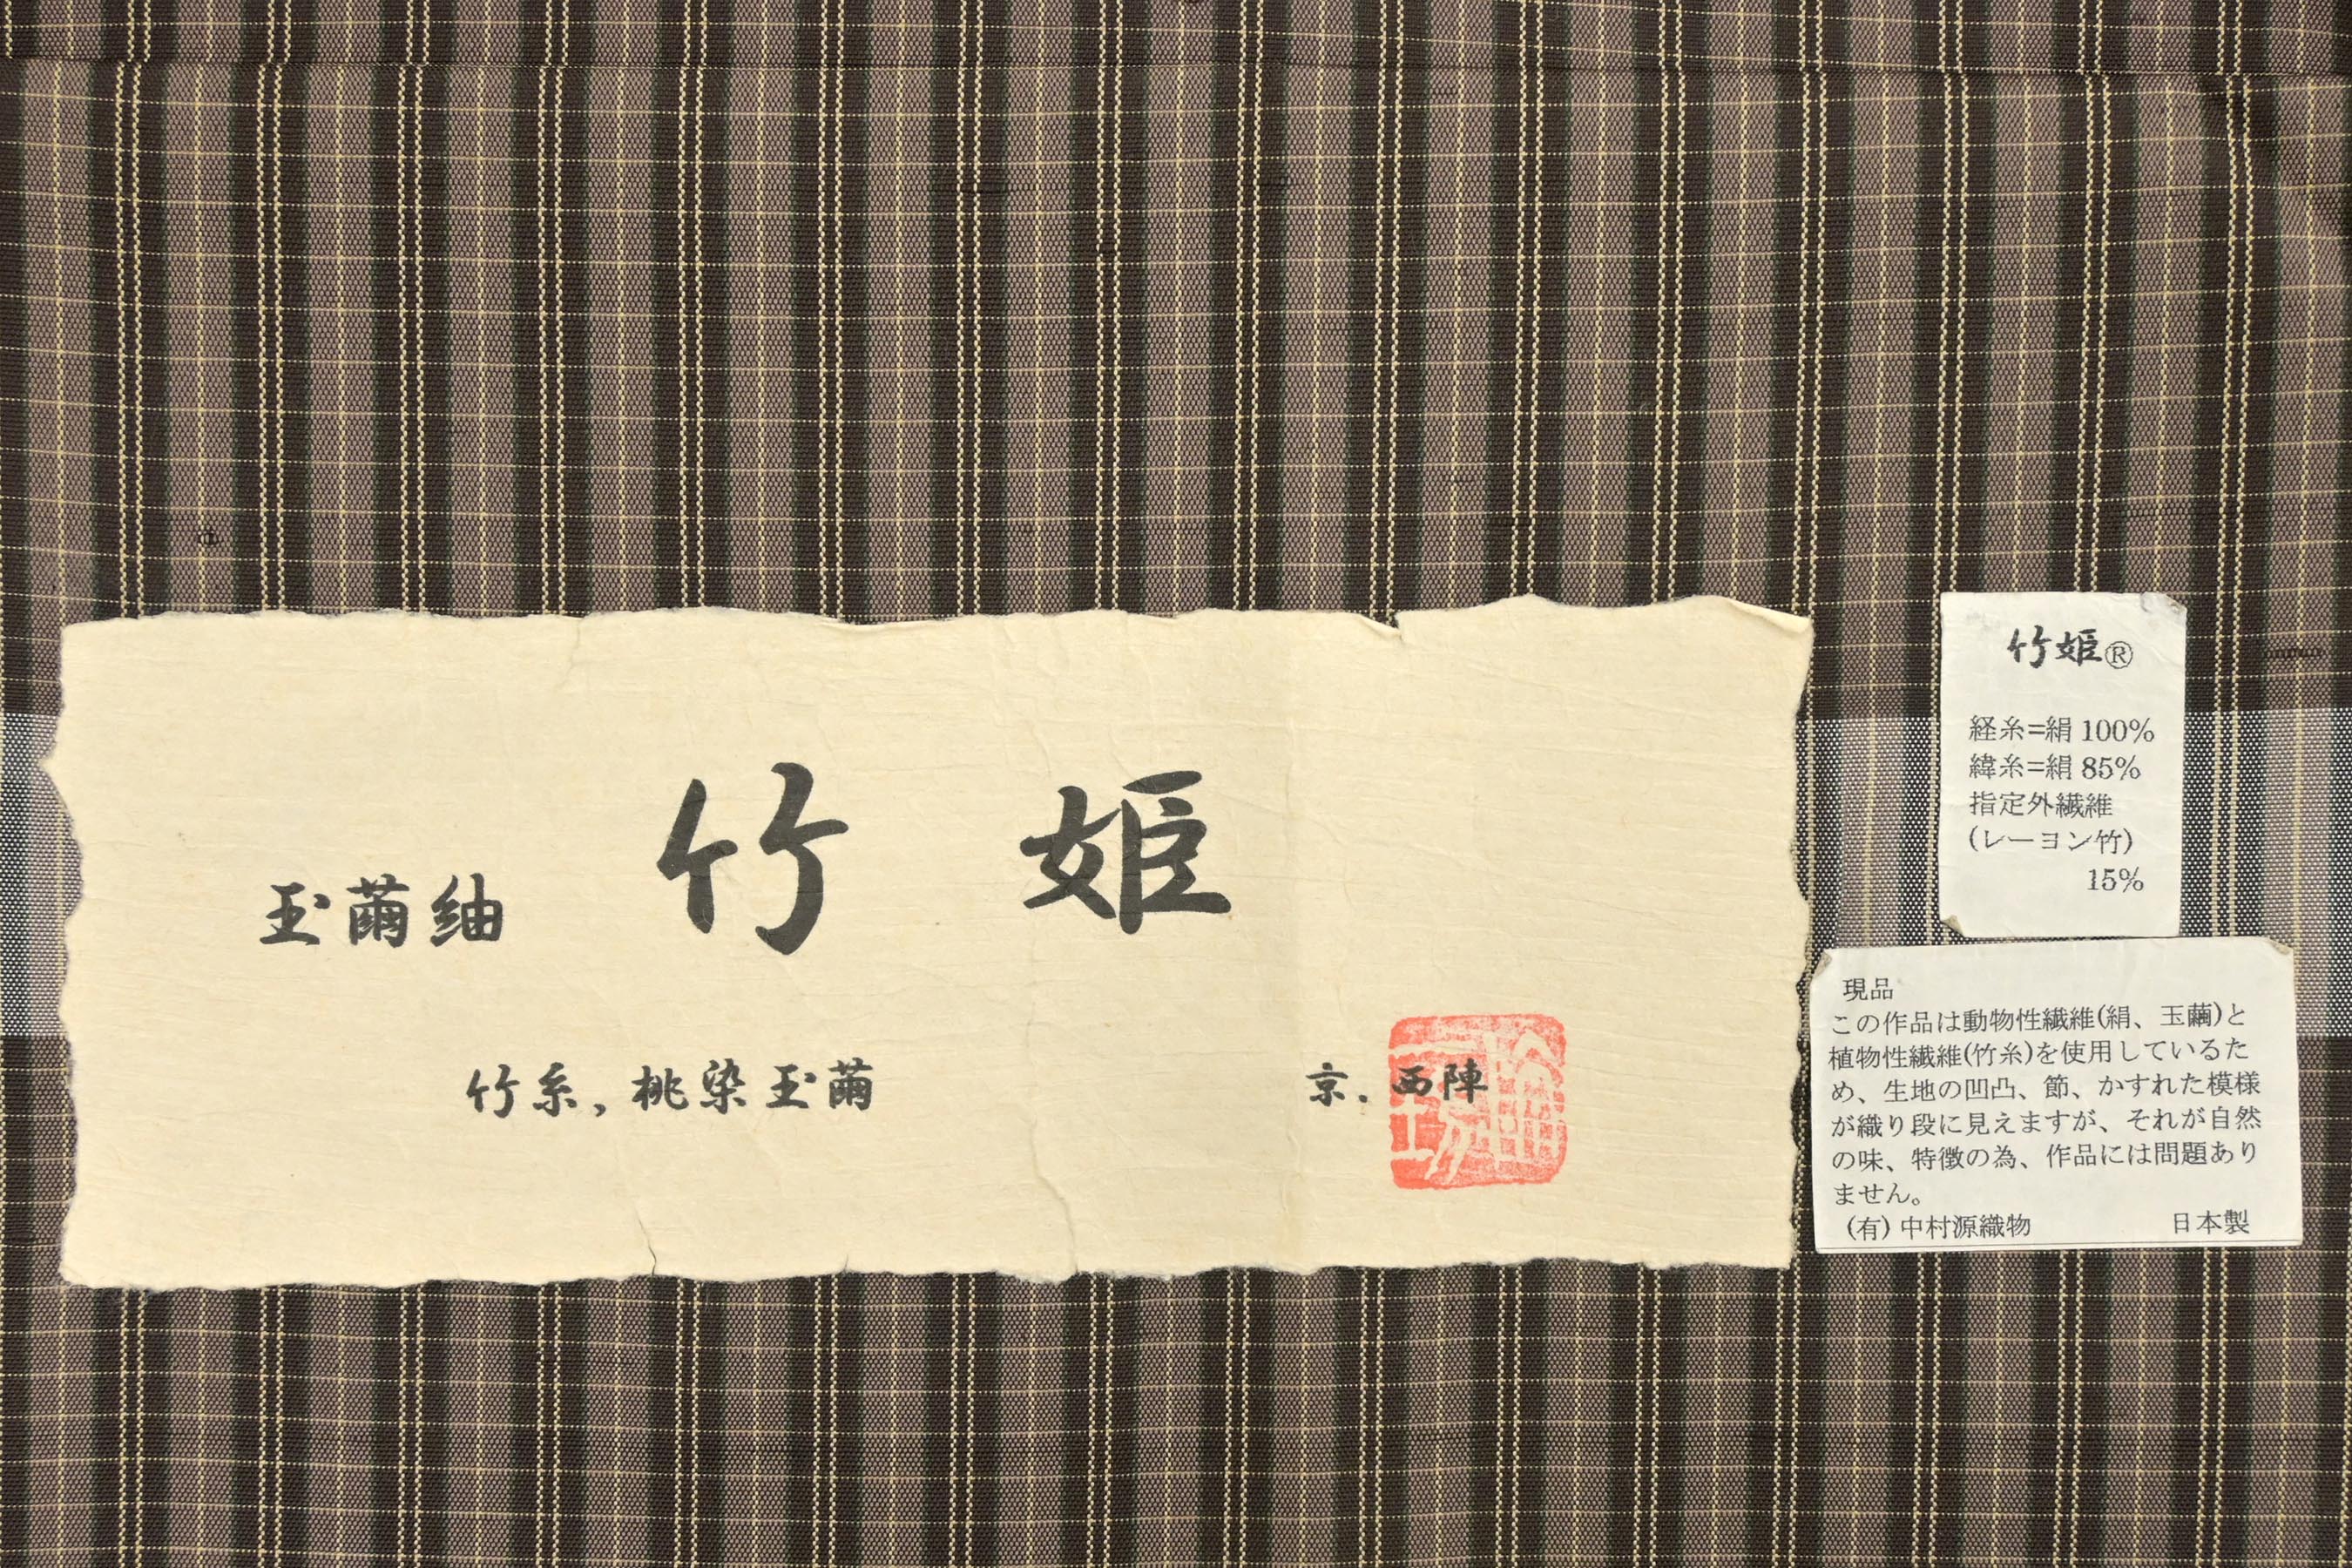 玉繭紬 竹姫
竹糸,桃染玉繭
京.西陣
竹姫®
経糸=絹 100%
緯糸=絹 85%
指定外繊維
(レーヨン竹)
15%
現品
この作品は動物性繊維(絹、玉繭)と
植物性繊維(竹糸)を使用しているた
め、生地の凹凸、節、かすれた模様
が織り段に見えますが、それが自然
の味、特徴の為、作品には問題あり
ません。
(有) 中村源織物 日本製